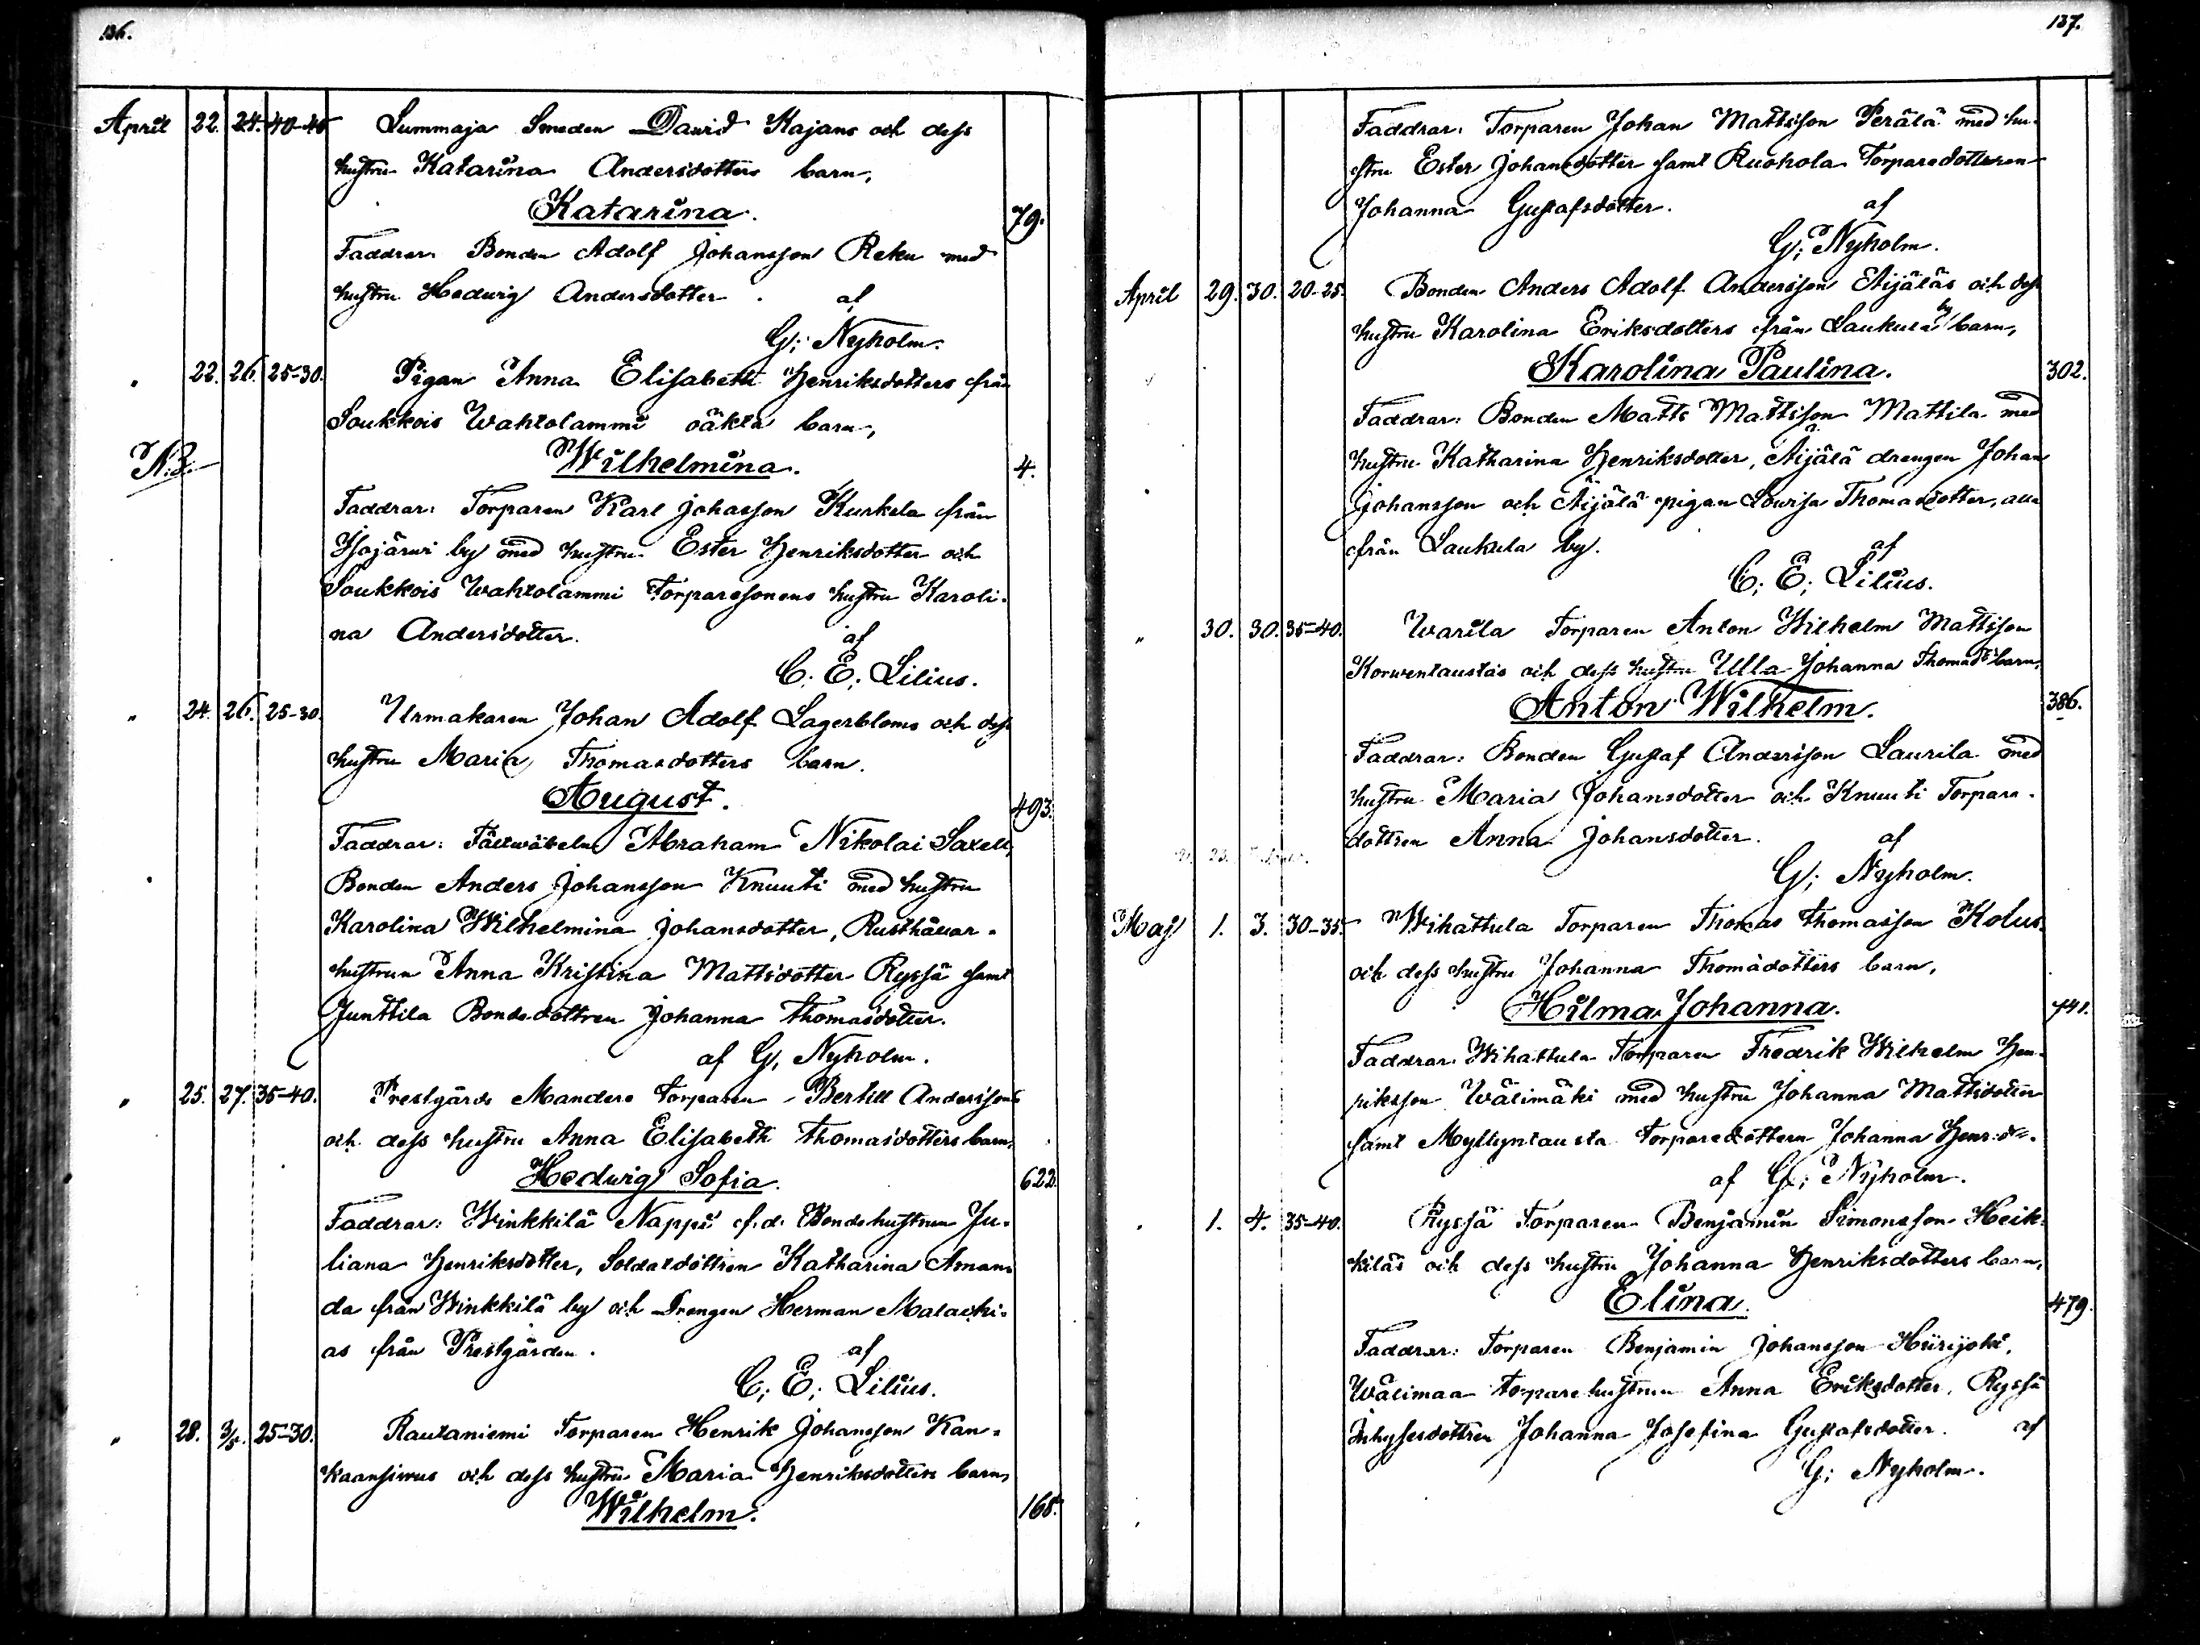 136.
April 22. 24. 40-45 Summaja Smeden David Kajans och dess
hustru Katarina Andersdotters barn,
Katarina. 79.
Faddrar: Bonden Adolf Johansson Reku med
hustru Hedwig Andersdotter. af
G; Nyholm.
" 22. 26. 25-30. Pigan Anna Elisabeth Henriksdotters från
Soukkois Wahtolammi oäkta barn,
N.B. Wilhelmina. 4.
Faddrar: Torparen Karl Johasson Kurkela från
Isojärwi by med hustru Ester Henriksdotter och
Soukkois Wahtolammi Torparesonens hustru Karoli-
na Andersdotter. af
C. E; Lilius.
" 24. 26. 25-30. Urmakaren Johan Adolf Lagerbloms och dess
hustru Maria Thomasdotters barn.
August. 493.
Faddrar: Fältwäbeln Abraham Nikolai Saxell,
Bonden Anders Johansson Knuuti med hustru
Karolina Wilhelmina Johansdotter, Rusthållar-
hustrun Anna Kristina Mattsdotter Ryssä samt
Junttila Bondedottren Johanna Thomasdotter.
af G; Nyholm.
" 25. 27. 35-40. Prestgårds Manders torparen Bertill Anderssons
och dess hustru Anna Elisabeth Thomasdotters barn,
Hedwig Sofia. 622.
Faddrar: Winkkilä Nappi f.d. Bondehustrun Ju-
liana Henriksdotter, Soldatdottren Katharina Aman-
da från Winkkilä by och Drengen Herman Malachi-
as från Prestgården. af
C; E; Lilius.
" 28. 3/5. 25-30. Rautaniemi Torparen Henrik Johansson Kan-
kaansiwus och dess hustru Maria Henriksdotters barn,
Wilhelm. 168.
137.
Faddrar: Torparen Johan Mattsson Perälä med hu-
stru Ester Johansdotter samt Ruohola Torparedotteren
Johanna Gustafsdotter. af
G; Nyholm.
April 29. 30. 20-25. Bonden Anders Adolf Andersson Äijäläs och dess
hustru Karolina Eriksdotters från Laukula by barn,
Karolina Paulina. 302.
Faddrar: Bonden Matts Mattsson Mattila med
hustru Katharina Henriksdotter, Äijälä drengen Johan
Johansson och Äijälä pigan Lowisa Thomasdotter, alla
från Laukula by. af
C; E; Lilius.
" 30. 30. 35-40. Warila Torparen Anton Wilhelm Mattsson
Korwentaustas och dess hustru Ulla Johanna Thomasd:s barn,
Anton Wilhelm. 386.
Faddrar: Bonden Gustaf Andersson Laurila med
hustru Maria Johansdotter och Knuuti Torpare-
dottren Anna Johansdotter. af
G; Nyholm.
Maj 1. 3. 30-35. Wihattula Torparen Thomas Thomasson Kolus
och dess hustru Johanna Thomädotters barn,
Hilma Johanna. 741.
Faddrar: Wihattula Torparen Fredrik Wilhelm Hen-
riksson Wälimäki med hustru Johanna Mattsdotter
samt Myllyntausta torparedottern Johanna Henr:dr.
af G; Nyholm.
" 1. 4. 35-40. Ryssä Torparen Benjamin Simonsson Heik-
kiläs och dess hustru Johanna Henriksdotters barn,
Elina. 479.
Faddrar: Torparen Benjamin Johansson Hiirijoki,
Wälimaa torparehustrun Anna Eriksdotter, Ryssä
Inhysesdottren Johanna Josefina Gustafsdotter. af
G; Nyholm.